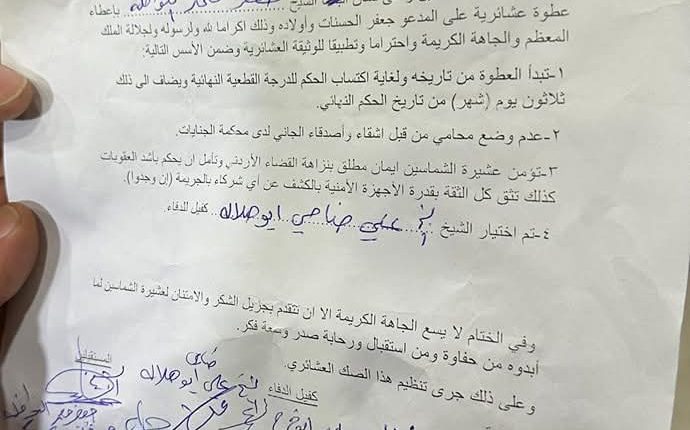 الشيخ
عطوة عشائرية على المدعو جعفر الحسنات وأولاده وذلك اكراما لله ولرسوله ولجلالة الملك
المعظم والجاهة الكريمة واحتراما وتطبيقا للوثيقة العشائرية وضمن الأسس التالية:
١-تبدأ العطوة من تاريخه ولغاية اكتساب الحكم للدرجة القطعية النهائية ويضاف الى ذلك
ثلاثون يوم (شهر) من تاريخ الحكم النهائي.
٢-عدم وضع محامي من قبل اشقاء وأصدقاء الجاني لدى محكمة الجنايات.
٣-تؤمن عشيرة الشماسين ايمان مطلق بنزاهة القضاء الأردني وتأمل ان يحكم بأشد العقوبات
كذلك تثق كل الثقة بقدرة الأجهزة الأمنية بالكشف عن أي شركاء بالجريمة (إن وجدوا).
٤-تم اختيار الشيخ علي ضاحي ابو هلاله كفيل للدفاء.
وفي الختام لا يسع الجاهة الكريمة الا ان تتقدم بجزيل الشكر والامتنان لعشيرة الشماسين لما
أبدوه من حفاوة ومن استقبال ورحابة صدر وسعة فكر.
وعلى ذلك جرى تنظيم هذا الصك العشائري.
ضاحي
علي ابو هلاله
كفيل الدفاء